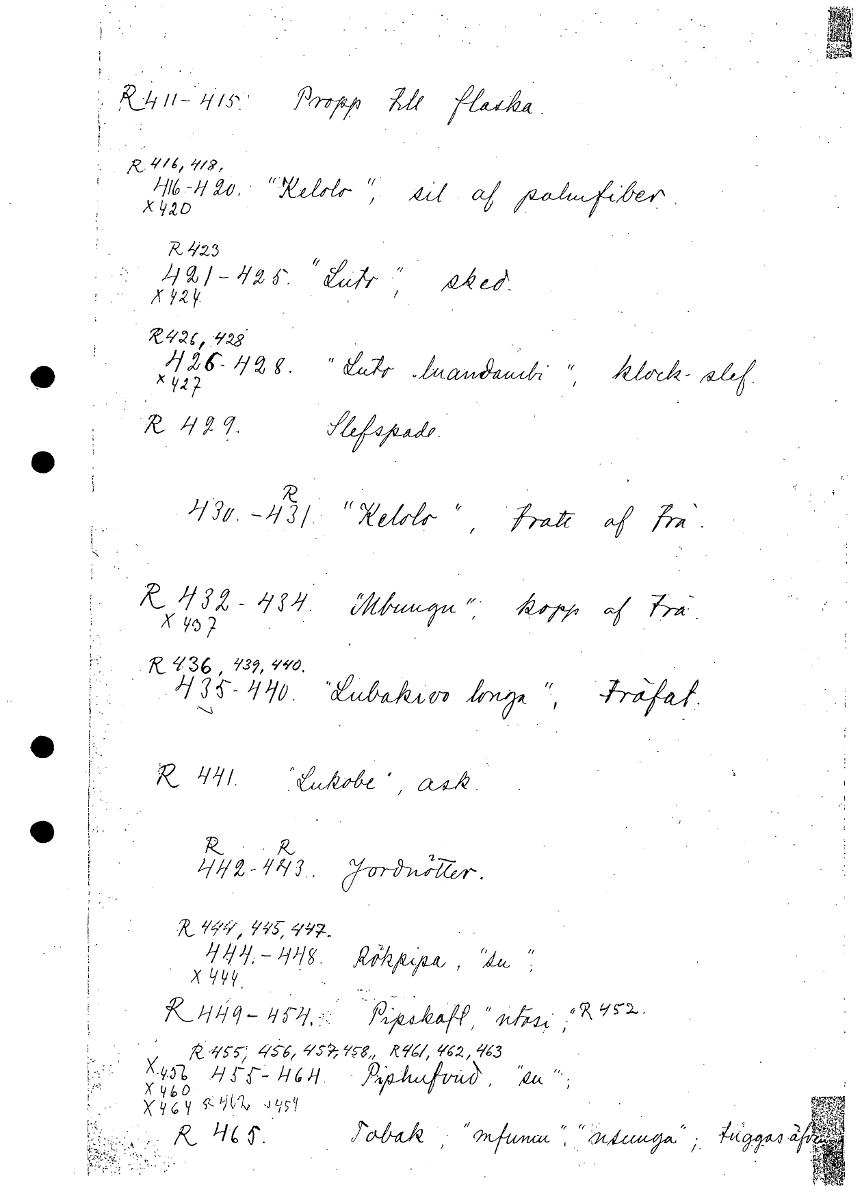 R 411-415. Propp till flaska.
R 416, 418,
416-420. "Kelolo", sil af palmfiber.
X 420
R 423
421-425. "Luto", sked.
X 424
R 426, 428
426-428. "Luto luandambi", klock-slef.
X 427
R 429. Slefspade.
R
430.-431. "Kelolo", Fratt af Trä.
R 432-434. "Mbungu"; kopp af Trä.
X 437
R 436, 439, 440.
435-440. "Lubakivo longa", Träfat.
R 441. "Lukobe", ask.
R R
442-443. Jordnötter.
R 444, 445, 447.
444.-448. Rökpipa, "su";
X 444.
R 449-454. Pipskaft, "ntosi"; R 452.
R 455, 456, 457, 458, R 461, 462, 463
X 456 455-464. Piphufvud, "su";
X 460
X 464 R 462 459
R 465. Tobak, "mfumu", "nsunga"; tuggas